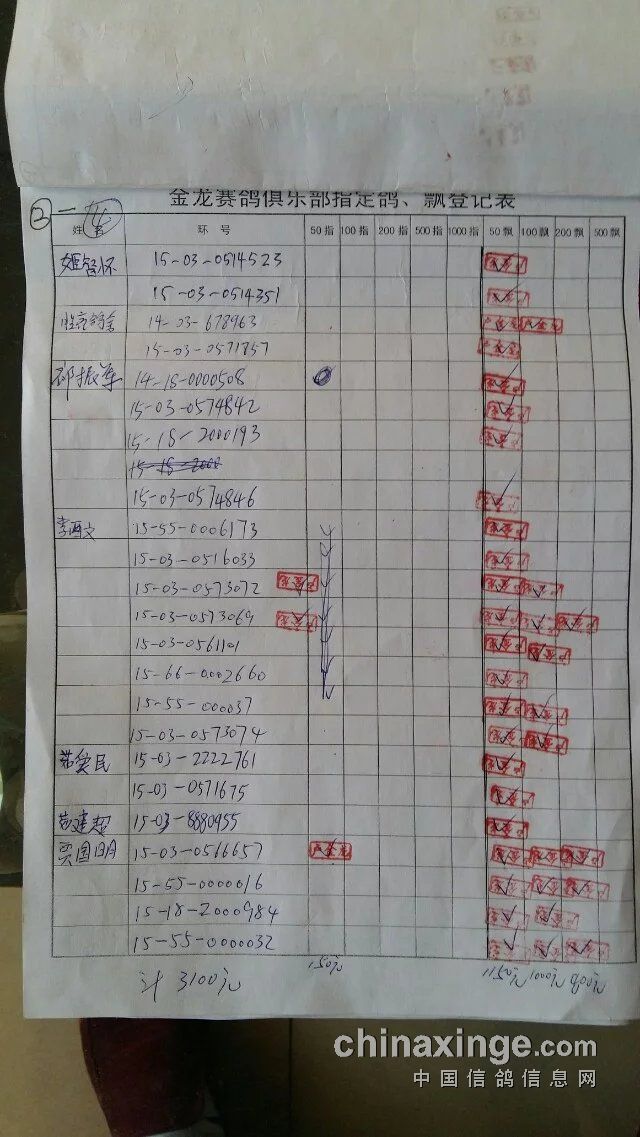 金龙赛鸽俱乐部指定鸽、飘登记表
② 一 ④
姓 名 环 号 50指 100指 200指 500指 1000指 50飘 100飘 200飘 500飘
姬智怀 15-03-0514523
15-03-0514351
14-03-678963
15-03-0571757
祁振军 14-15-0000508
15-03-0574842
15-15-2000193
15-15-2000
15-03-0574846
15-55-0006173
15-03-0516033
15-03-0573072
15-03-0573069
15-03-0561101
15-66-0002660
15-55-000037
15-03-0573074
15-03-2222761
15-03-0571675
建超 15-03-8880955
贾国明 15-03-0566657
15-55-0000016
15-18-2000984
15-55-0000032
计 3100元 150元 1150元 1000元 800元
chinaxinge.com
中国信鸽信息网